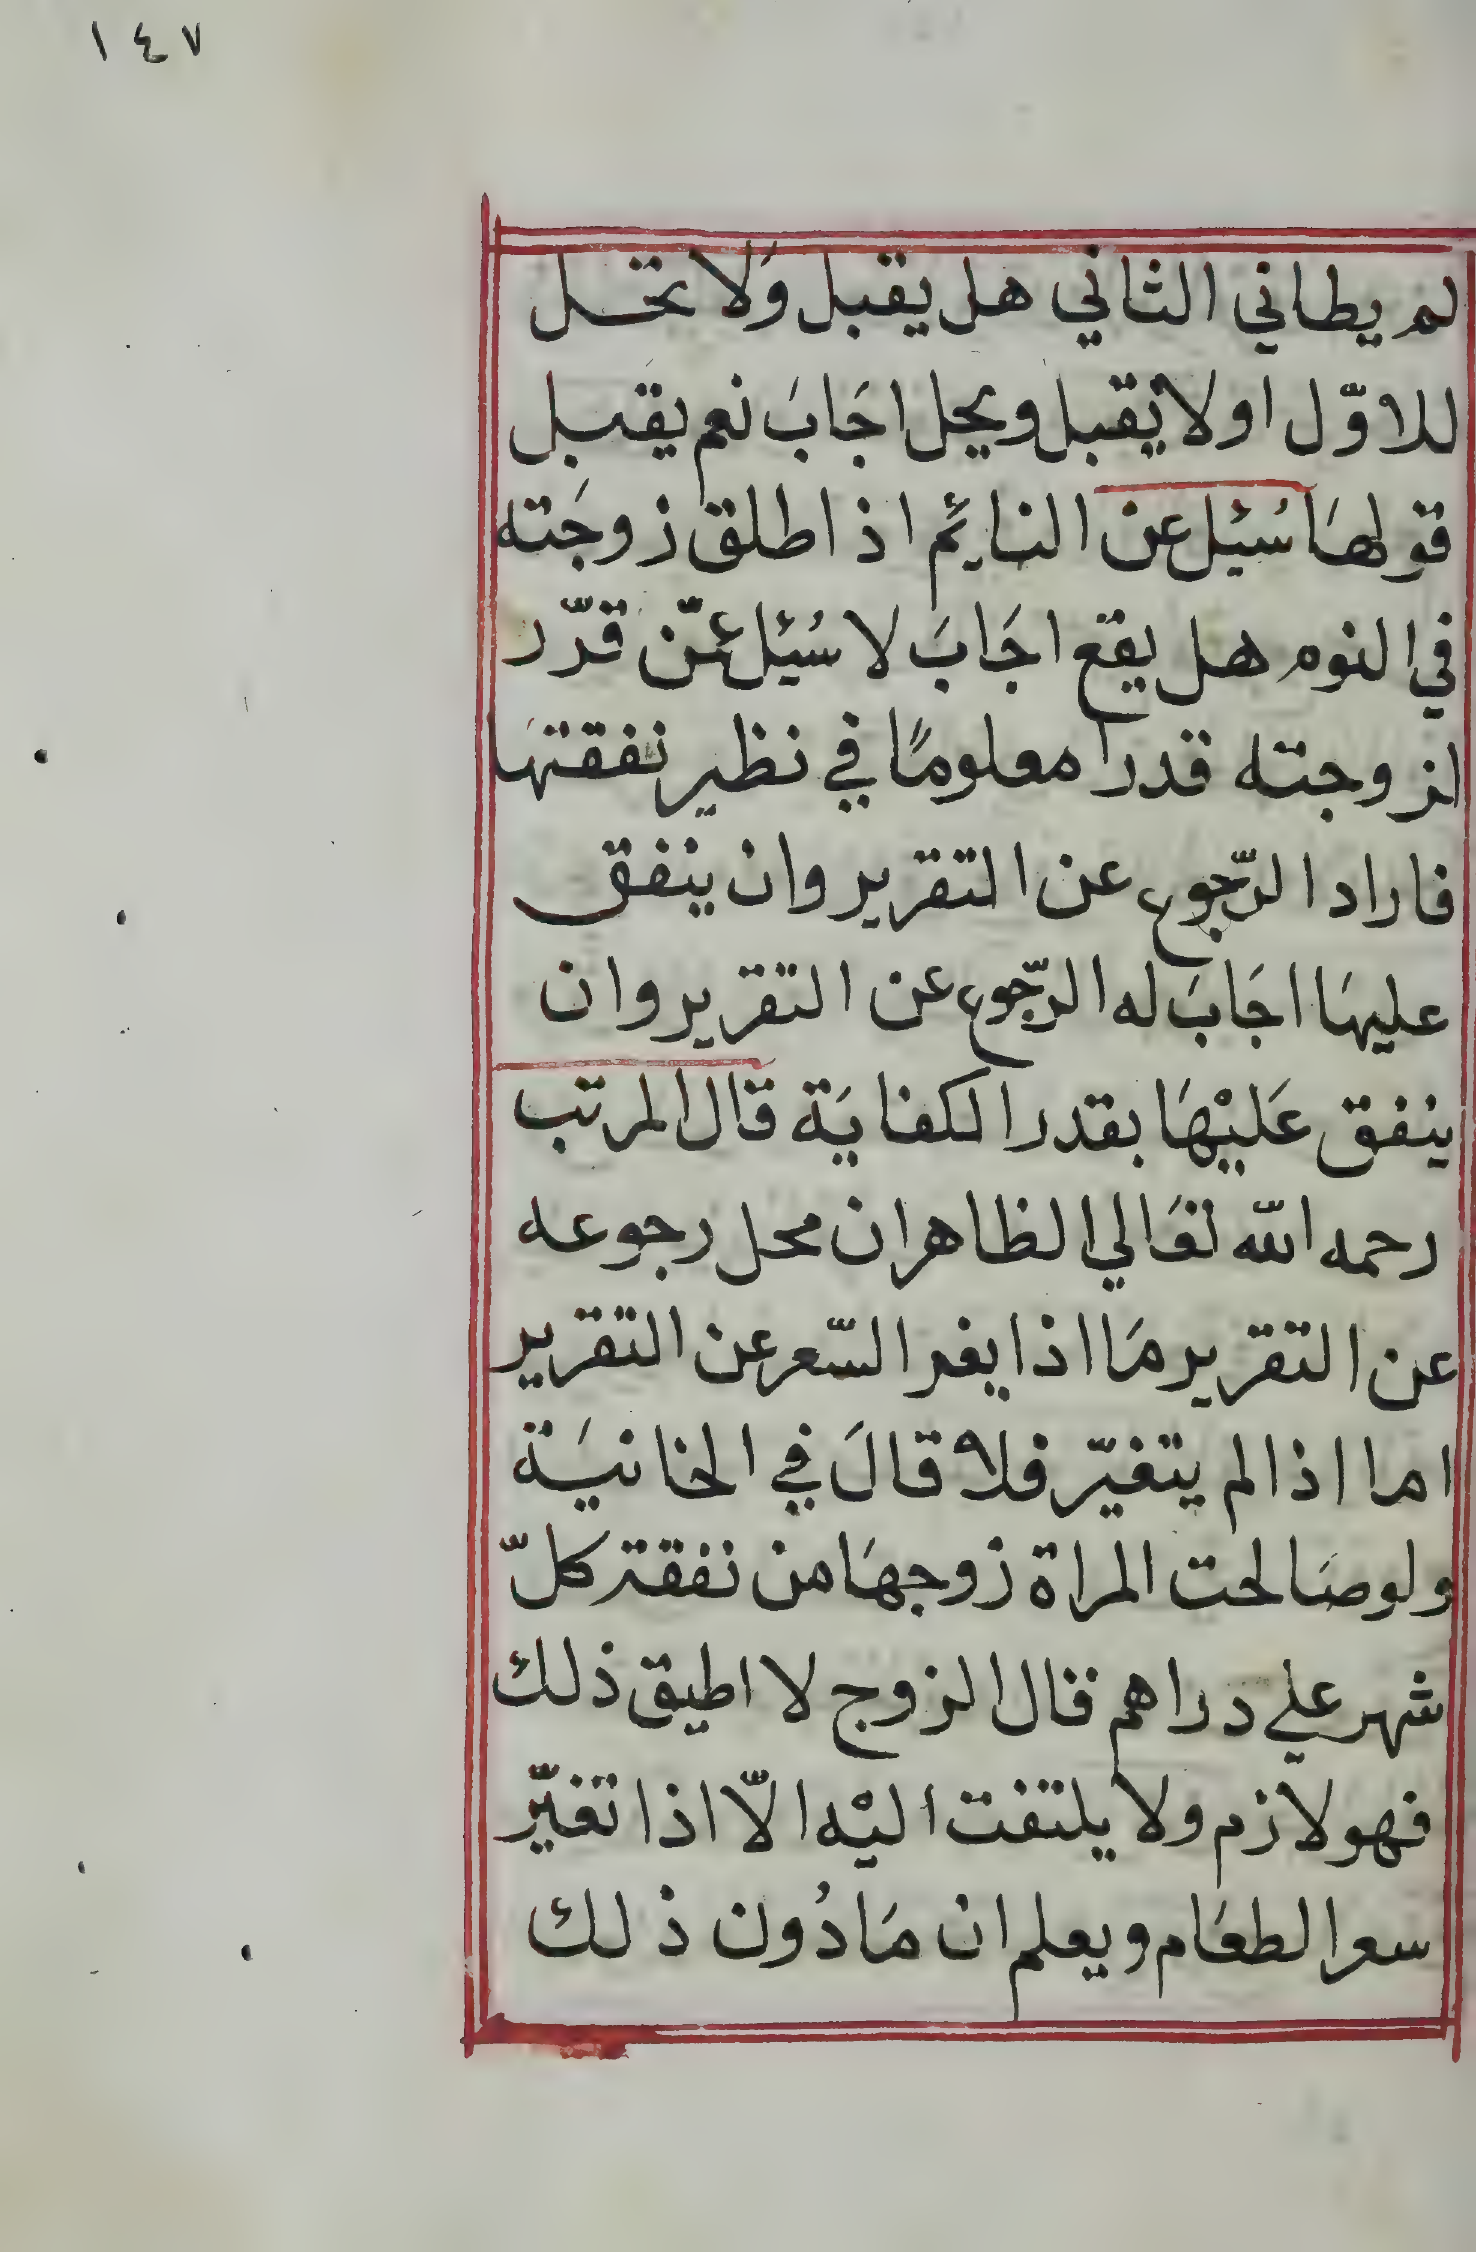 ١٤٧
لم يطاني الثاني هل يقبل وَلا تحل
للاوّل اولا يقبل ويحل اجَابَ نعم يقبل
قولهَا سُئِل عن النايمُ اذا طلق زوجَته
في النوم هل يقع اجَابَ لا سُئِل عمّن قرّر
لزوجته قدرا معلومًا في نظير نفقتهَا
فاراد الرّجوع عن التقرير وان ينفق
عليهَا اجَابَ له الرّجوع عن التقرير وان
ينفق عَليْهَا بقدر الكفايَة قال المرتب
رحمه اللّه تعَالي الظاهر ان محل رجوعه
عن التقرير مَا اذا يغير السّعر عن التقرير
اما اذا لم يتغيّر فلا قالَ في الخانيَة
ولو صَالحت المراة زوجهَا من نفقة كلّ
شهر علي دراهم قال الزوج لا اطيق ذلك
فهو لازم ولا يلتفت اليْه الّا اذا تغيّر
سعر الطعَام ويعلم ان مَا دُون ذلك